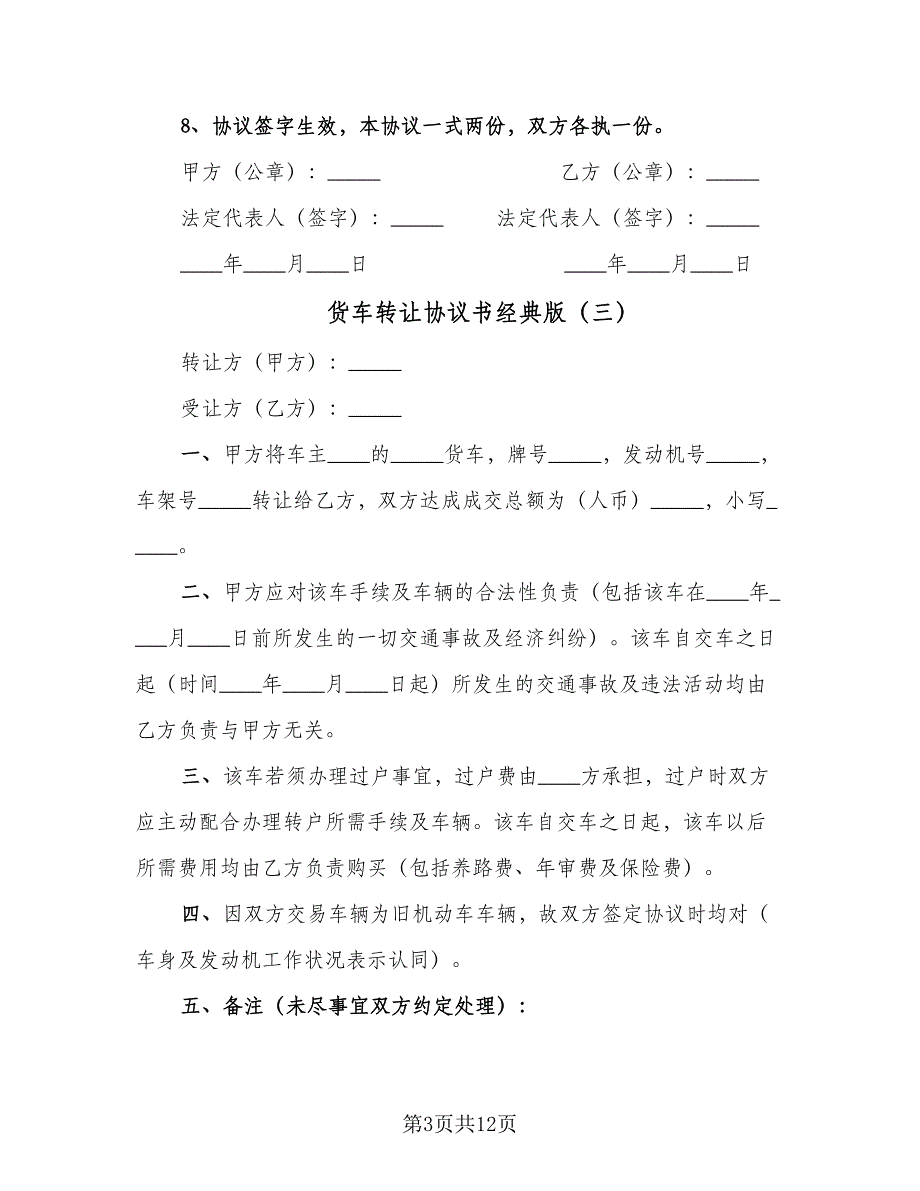 8、协议签字生效，本协议一式两份，双方各执一份。
甲方（公章）：_____ 乙方（公章）：_____
法定代表人（签字）：_____ 法定代表人（签字）：_____
____年____月____日 ____年____月____日
货车转让协议书经典版（三）
转让方（甲方）：_____
受让方（乙方）：_____
一、甲方将车主____的_____货车，牌号_____，发动机号_____，
车架号_____转让给乙方，双方达成成交总额为（人币）_____，小写_
____。
二、甲方应对该车手续及车辆的合法性负责（包括该车在____年_
___月____日前所发生的一切交通事故及经济纠纷）。该车自交车之日
起（时间____年____月____日起）所发生的交通事故及违法活动均由
乙方负责与甲方无关。
三、该车若须办理过户事宜，过户费由____方承担，过户时双方
应主动配合办理转户所需手续及车辆。该车自交车之日起，该车以后
所需费用均由乙方负责购买（包括养路费、年审费及保险费）。
四、因双方交易车辆为旧机动车车辆，故双方签定协议时均对（
车身及发动机工作状况表示认同）。
五、备注（未尽事宜双方约定处理）：
第3页共12页